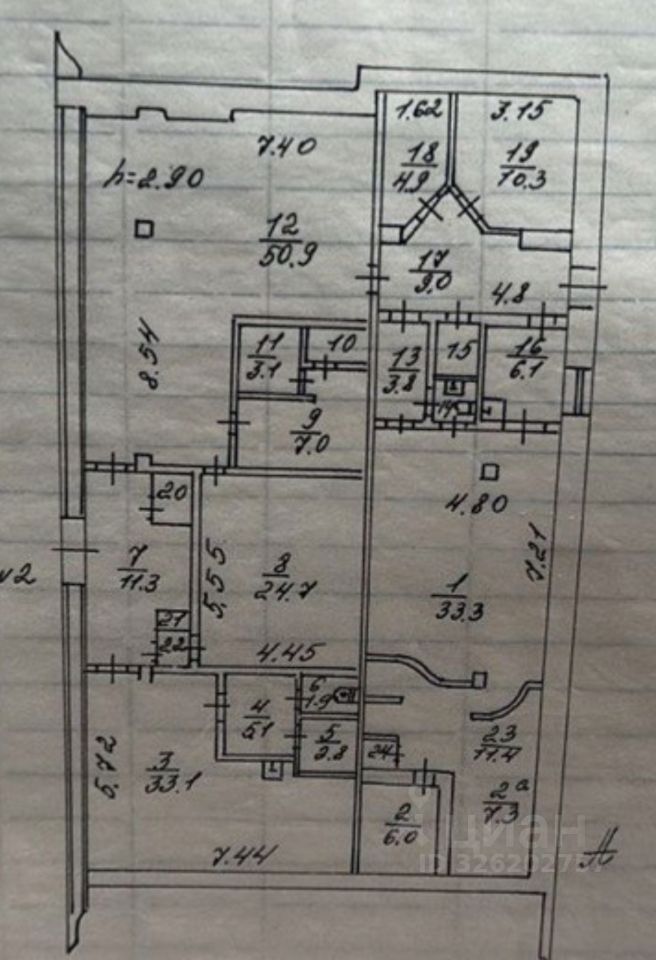 1.62
3.15
7.40
18
4.9
19
10.3
h=2.90
12
50.9
17
9.0
4.8
8.54
11
3.1
10
13
3.8
15
16
6.1
14
9
7.0
20
4.80
7.21
7
11.3
5.55
8
24.7
1
33.3
21
22
4.45
6
1.9
4
5.1
5
2.8
24
23
11.4
5.72
3
33.1
2
6.0
2а
7.3
7.44
циан